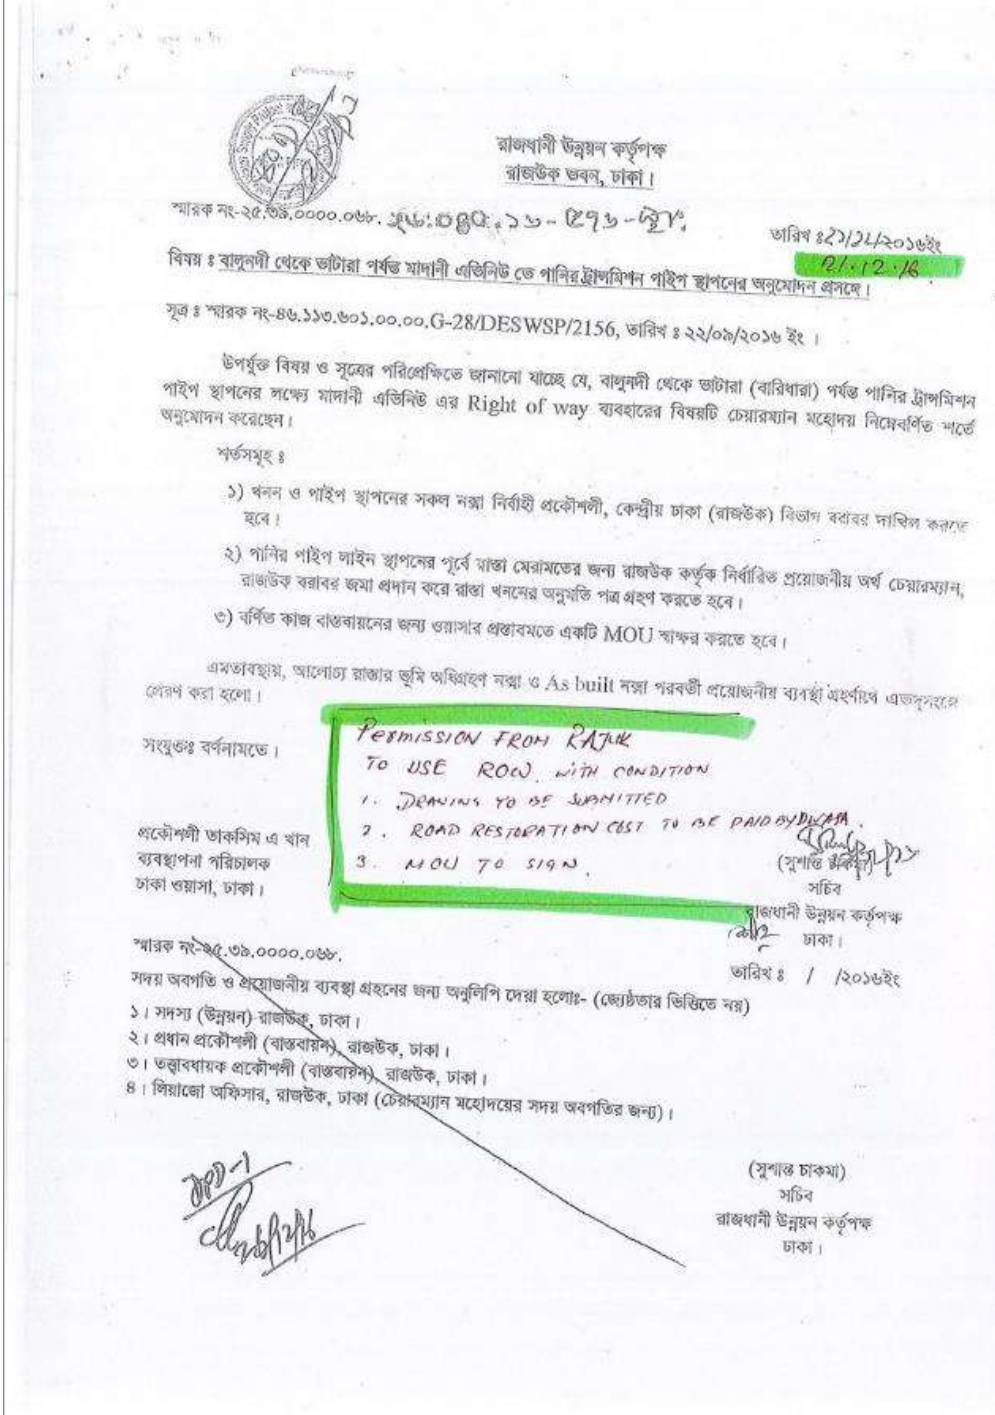 রাজধানী উন্নয়ন কর্তৃপক্ষ
রাজউক ভবন, ঢাকা।
স্মারক নং-২৫.৩৯.০০০০.০৬৮.
তারিখ ঃ২১/১২/২০১৬ইং
21.12.16
বিষয় ঃ বালুনদী থেকে ভাটারা পর্যন্ত মাদানী এভিনিউ তে পানির ট্রান্সমিশন পাইপ স্থাপনের অনুমোদন প্রসঙ্গে।
সূত্র ঃ স্মারক নং-৪৬.১১৩.৬০১.০০.০০.G-28/DESWSP/2156, তারিখ ঃ ২২/০৯/২০১৬ ইং ।
উপর্যুক্ত বিষয় ও সূত্রের পরিপ্রেক্ষিতে জানানো যাচ্ছে যে, বালুনদী থেকে ভাটারা (বারিধারা) পর্যন্ত পানির ট্রান্সমিশন
পাইপ স্থাপনের লক্ষ্যে মাদানী এভিনিউ এর Right of way ব্যবহারের বিষয়টি চেয়ারম্যান মহোদয় নিম্নেবর্ণিত শর্তে
অনুমোদন করেছেন।
শর্তসমূহ ঃ
১) খনন ও পাইপ স্থাপনের সকল নক্সা নির্বাহী প্রকৌশলী, কেন্দ্রীয় ঢাকা (রাজউক) বিভাগ বরাবর দাখিল করতে
হবে।
২) পানির পাইপ লাইন স্থাপনের পূর্বে রাস্তা মেরামতের জন্য রাজউক কর্তৃক নির্ধারিত প্রয়োজনীয় অর্থ চেয়ারম্যান,
রাজউক বরাবর জমা প্রদান করে রাস্তা খননের অনুমতি পত্র গ্রহণ করতে হবে।
৩) বর্ণিত কাজ বাস্তবায়নের জন্য ওয়াসার প্রস্তাবমতে একটি MOU স্বাক্ষর করতে হবে।
এমতাবস্থায়, আলোচ্য রাস্তার ভূমি অধিগ্রহণ নক্সা ও As built নক্সা পরবর্তী প্রয়োজনীয় ব্যবস্থা গ্রহণার্থে এতদ্সংগে
প্রেরণ করা হলো।
সংযুক্তঃ বর্ণনামতে।
PERMISSION FROM RAJUK
TO USE ROW WITH CONDITION
1. DRAWING TO BE SUBMITTED
2. ROAD RESTORATION COST TO BE PAID BY DWASA.
3. MOU TO SIGN.
প্রকৌশলী তাকসিম এ খান
ব্যবস্থাপনা পরিচালক
ঢাকা ওয়াসা, ঢাকা।
(সুশান্ত চাকমা)
সচিব
রাজধানী উন্নয়ন কর্তৃপক্ষ
ঢাকা।
স্মারক নং-২৫.৩৯.০০০০.০৬৮.
তারিখ ঃ / /২০১৬ইং
সদয় অবগতি ও প্রয়োজনীয় ব্যবস্থা গ্রহনের জন্য অনুলিপি দেয়া হলোঃ- (জ্যেষ্ঠতার ভিত্তিতে নয়)
১। সদস্য (উন্নয়ন) রাজউক, ঢাকা।
২। প্রধান প্রকৌশলী (বাস্তবায়ন), রাজউক, ঢাকা।
৩। তত্ত্বাবধায়ক প্রকৌশলী (বাস্তবায়ন), রাজউক, ঢাকা।
৪। লিয়াজো অফিসার, রাজউক, ঢাকা (চেয়ারম্যান মহোদয়ের সদয় অবগতির জন্য)।
(সুশান্ত চাকমা)
সচিব
রাজধানী উন্নয়ন কর্তৃপক্ষ
ঢাকা।